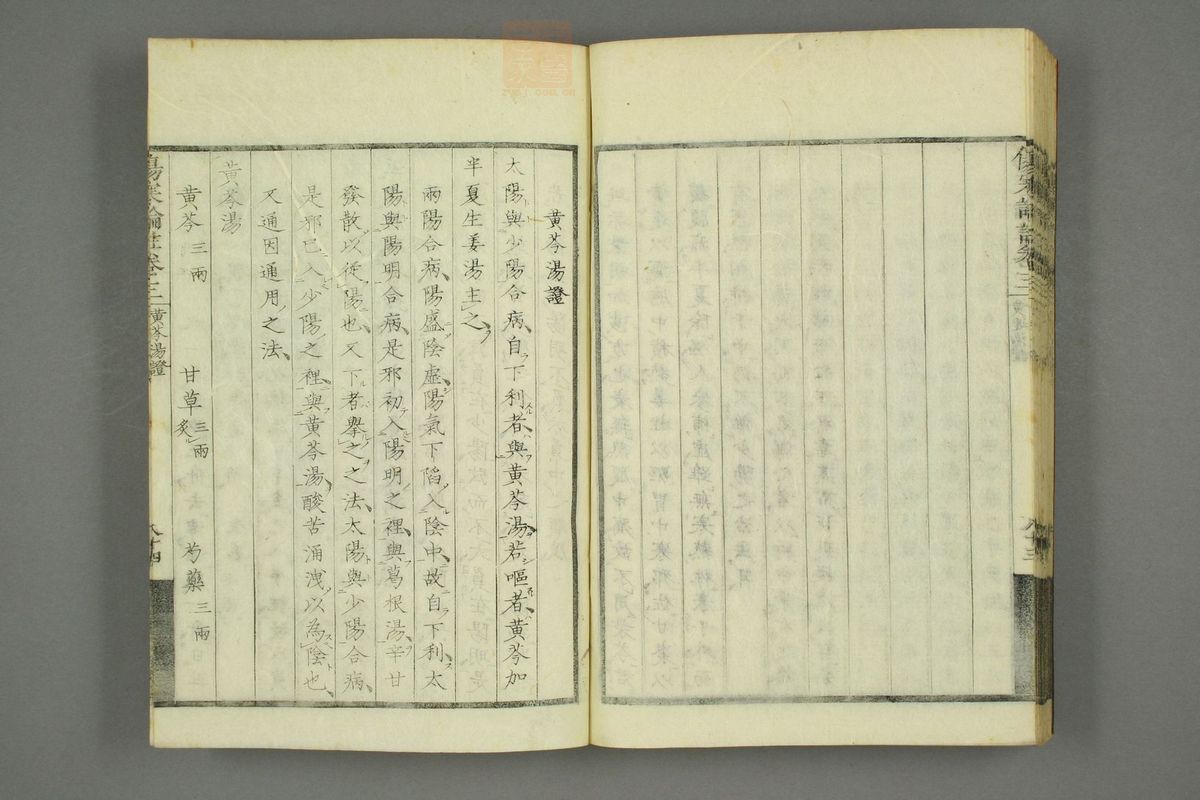 黄芩湯證
太陽與少陽合病、自下利者、與黄芩湯、若嘔者、黄芩加
半夏生姜湯主之、
兩陽合病、陽盛陰虚、陽氣下陷入陰中、故自下利、太
陽與陽明合病、是邪初入陽明之裡、與葛根湯、辛甘
發散、以從陽也、又下者舉之之法、太陽與少陽合病、
是邪已入少陽之裡、與黄芩湯、酸苦涌洩、以為陰也、
又通因通用之法、
黄芩湯
黄芩 三兩 甘草 三兩 炙 芍藥 三兩
傷寒論註 卷三 黄芩湯證 八十四
八十三